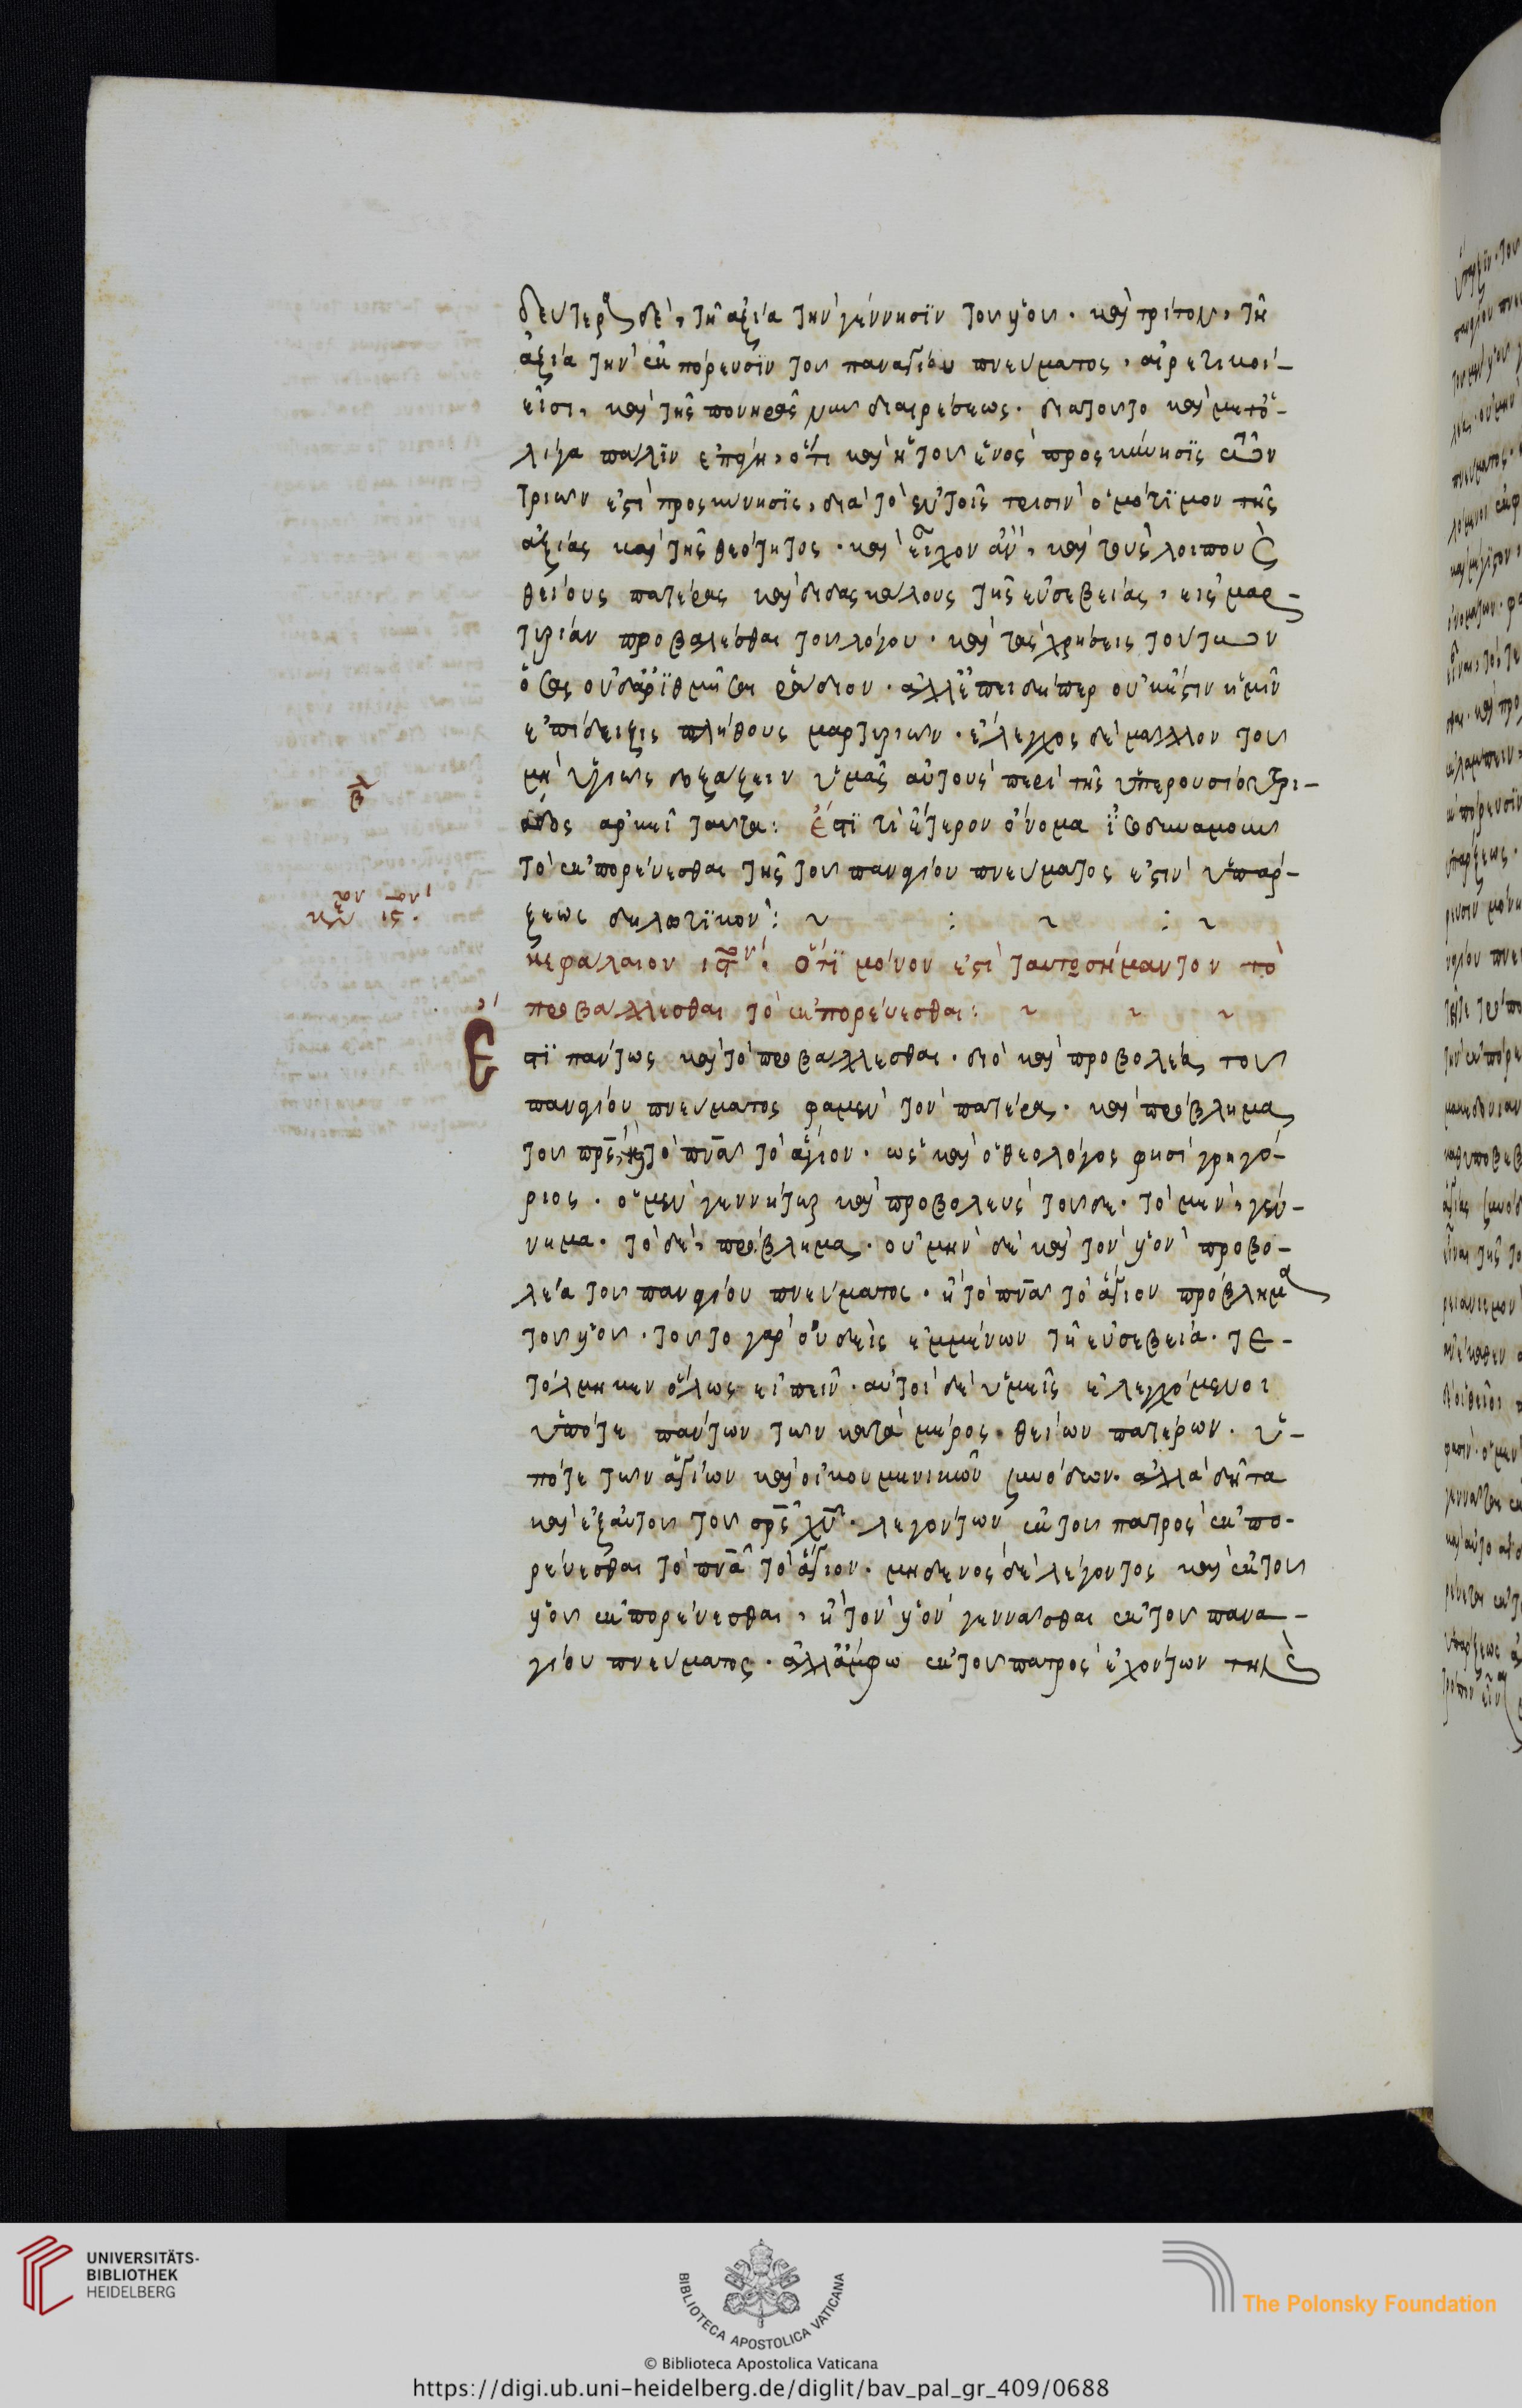 δευτέρα δὲ, τῇ ἀξία τὴν γέννησϊν τοῦ υἱοῦ. καὶ τρίτον, τῇ
ἀξία τὴν ἐκπόρευσϊν τοῦ παναγίου πνεύματος, αἱρετικοί-
εἰσι, καὶ τῆς πονηρᾶς διαιρέσεως. διατοῦτο καὶ μετ᾽ ὀ-
λίγα πάλϊν ὅτι καὶ ἡ τοῦ ἑνὸς προσκύνησϊς τῶν
τριῶν ἐστὶ προσκύνησϊς, διὰ τὸ ἐν τοῖς τρισὶν ὁμότϊμον τῆς
ἀξίας καὶ τῆς θεότητος. καὶ εἶχον ἂν, καὶ τοὺς λοιποὺς
θείους πατέρας καὶ διδασκάλους τῆς εὐσεβείας, εἰς μαρ-
τυρίαν προβαλέσθαι τοῦ λόγου. καὶ τὰς χρήσεις τούτων
ὅσας οὐδ᾽ ἀρϊθμῆσαι ῥάδιον. ἀλλ᾽ ἐπειδήπερ οὐκ ἔστιν ἡμῖν
ἐπίδειξις πλήθους μαρτυριῶν. ἔλεγχος δὲ μᾶλλον τοῦ
μὴ ὑγιῶς δοξάζειν ὑμᾶς αὐτοὺς περὶ τῆς ὑπερουσίου τρι-
άδος ἀρκεῖ ταῦτα: Ἔτϊ τί ἕτερον ὄνομα ἰσοδυναμοῦν
τὸ ἐκπορεύεσθαι τῆς τοῦ παναγίου πνεύματος ἐστὶν ὑπάρ-
ξεως δηλωτϊκόν: ~ : ~ : ~
κεφάλαιον ιαον: ὅτϊ μόνον ἐστὶ ταυτοσήμαντον τὸ
προβάλλεσθαι τὸ ἐκπορεύεσθαι: ~ ~ ~
Ἔτϊ πάντως καὶ τὸ προβάλλεσθαι. διὸ καὶ προβολέα τοῦ
παναγίου πνεύματος φαμὲν τὸν πατέρα. καὶ πρόβλημα
τοῦ πρς, τὸ πνα τὸ ἅγιον. ὡς καὶ ὁ θεολόγος φησὶ γρηγό-
ριος. ὁ μὲν γεννήτης καὶ προβολεὺς τοῦδε. τὸ μὲν, γέν-
νημα. τὸ δὲ, πρόβλημα. οὐ μὴν δὲ καὶ τὸν υἱὸν προβο-
λέα τοῦ παναγίου πνεύματος. ἢ τὸ πνα τὸ ἅγιον πρόβλημα
τοῦ υἱοῦ. τοῦτο γὰρ οὐδεὶς ἐμμένων τῇ εὐσεβεία. τε-
τόλμηκεν ὅλως εἰπεῖν. αὐτοὶ δὲ ὑμεῖς ἐλεγχόμενοι
ὑπότε πάντων τῶν κατὰ μέρος θείων πατέρων. ὑ-
πότε τῶν ἁγίων καὶ οἰκουμενικῶν συνόδων. ἀλλὰ δῆτα
καὶ ἐξ αὐτοῦ τοῦ σρς χυ. λεγόντων ἐκ τοῦ πατρὸς ἐκπο-
ρεύεσθαι τὸ πνα τὸ ἅγιον. μηδενὸς δὲ λέγοντος καὶ ἐκ τοῦ
υἱοῦ ἐκπορεύεσθαι, ἢ τὸν υἱὸν γεννᾶσθαι ἐκ τοῦ πανα-
γίου πνεύματος. ἀλλ᾽ ἄμφω ἐκ τοῦ πατρὸς ἐχόντων τὴν
UNIVERSITÄTS-
BIBLIOTHEK
HEIDELBERG
BIBLIOTECA APOSTOLICA VATICANA
The Polonsky Foundation
© Biblioteca Apostolica Vaticana
https://digi.ub.uni-heidelberg.de/diglit/bav_pal_gr_409/0688